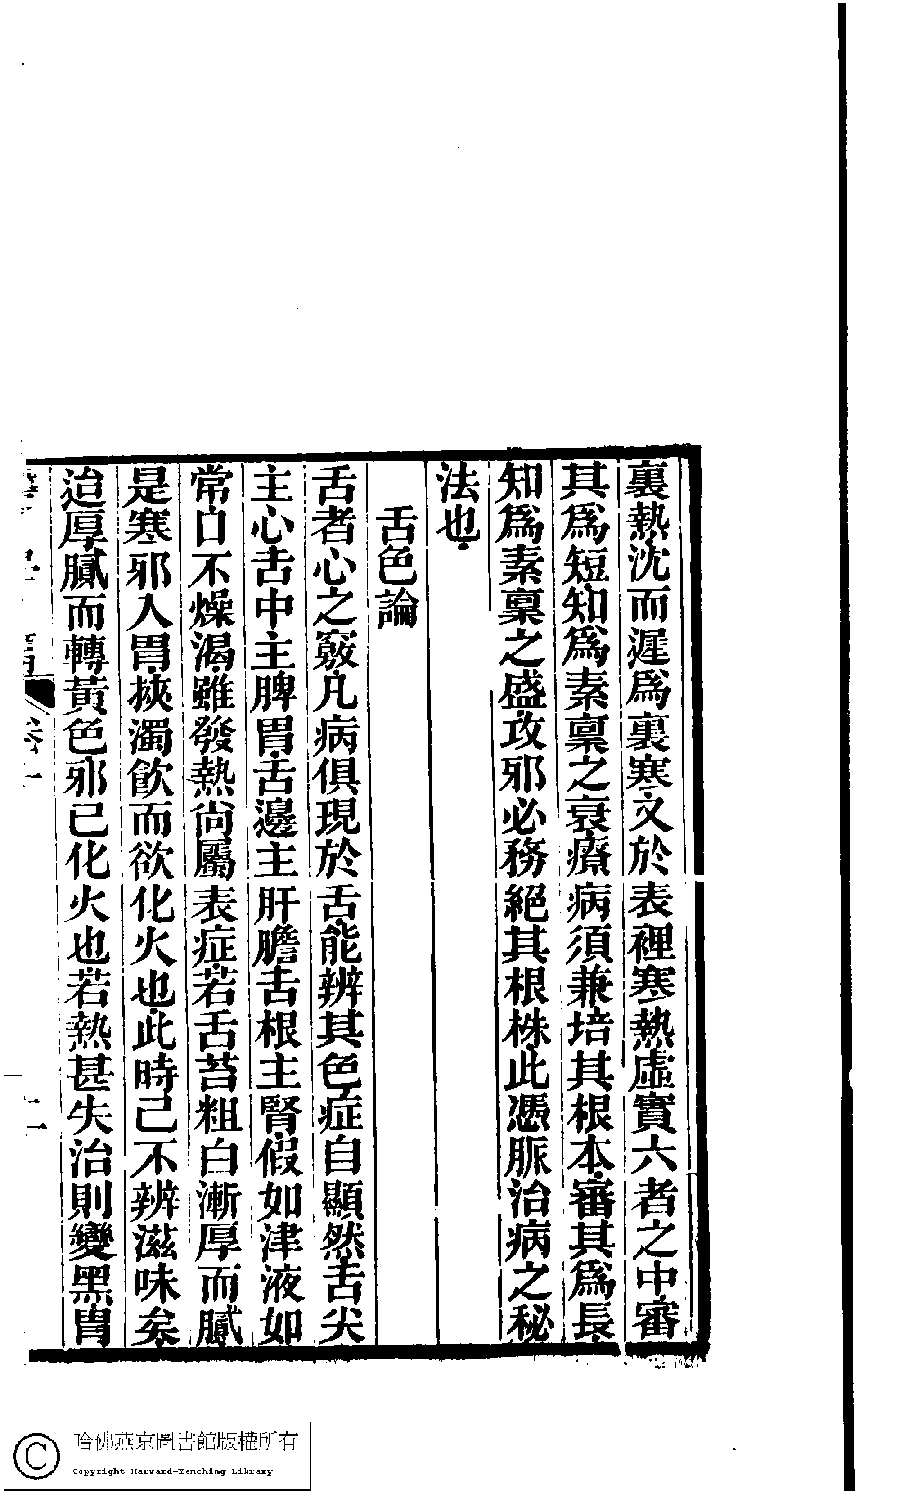 裏熱沈而遲爲裏寒又於表裡寒熱虛實六者之中審
其爲短知爲素稟之衰療病須兼培其根本審其爲長
知爲素稟之盛攻邪必務絕其根株此憑脈治病之秘
法也
舌色論
舌者心之竅凡病俱現於舌能辨其色症自顯然舌尖
主心舌中主脾胃舌邊主肝膽舌根主腎假如津液如
常口不燥渴雖發熱尚屬表症若舌苔粗白漸厚而膩
是寒邪入胃挾濁飮而欲化火也此時已不辨滋味矣
迨厚膩而轉黃色邪已化火也若熱甚失治則變黑胃
卷一
十一
哈佛燕京圖書館版權所有
Copyright Harvard-Yenching Library